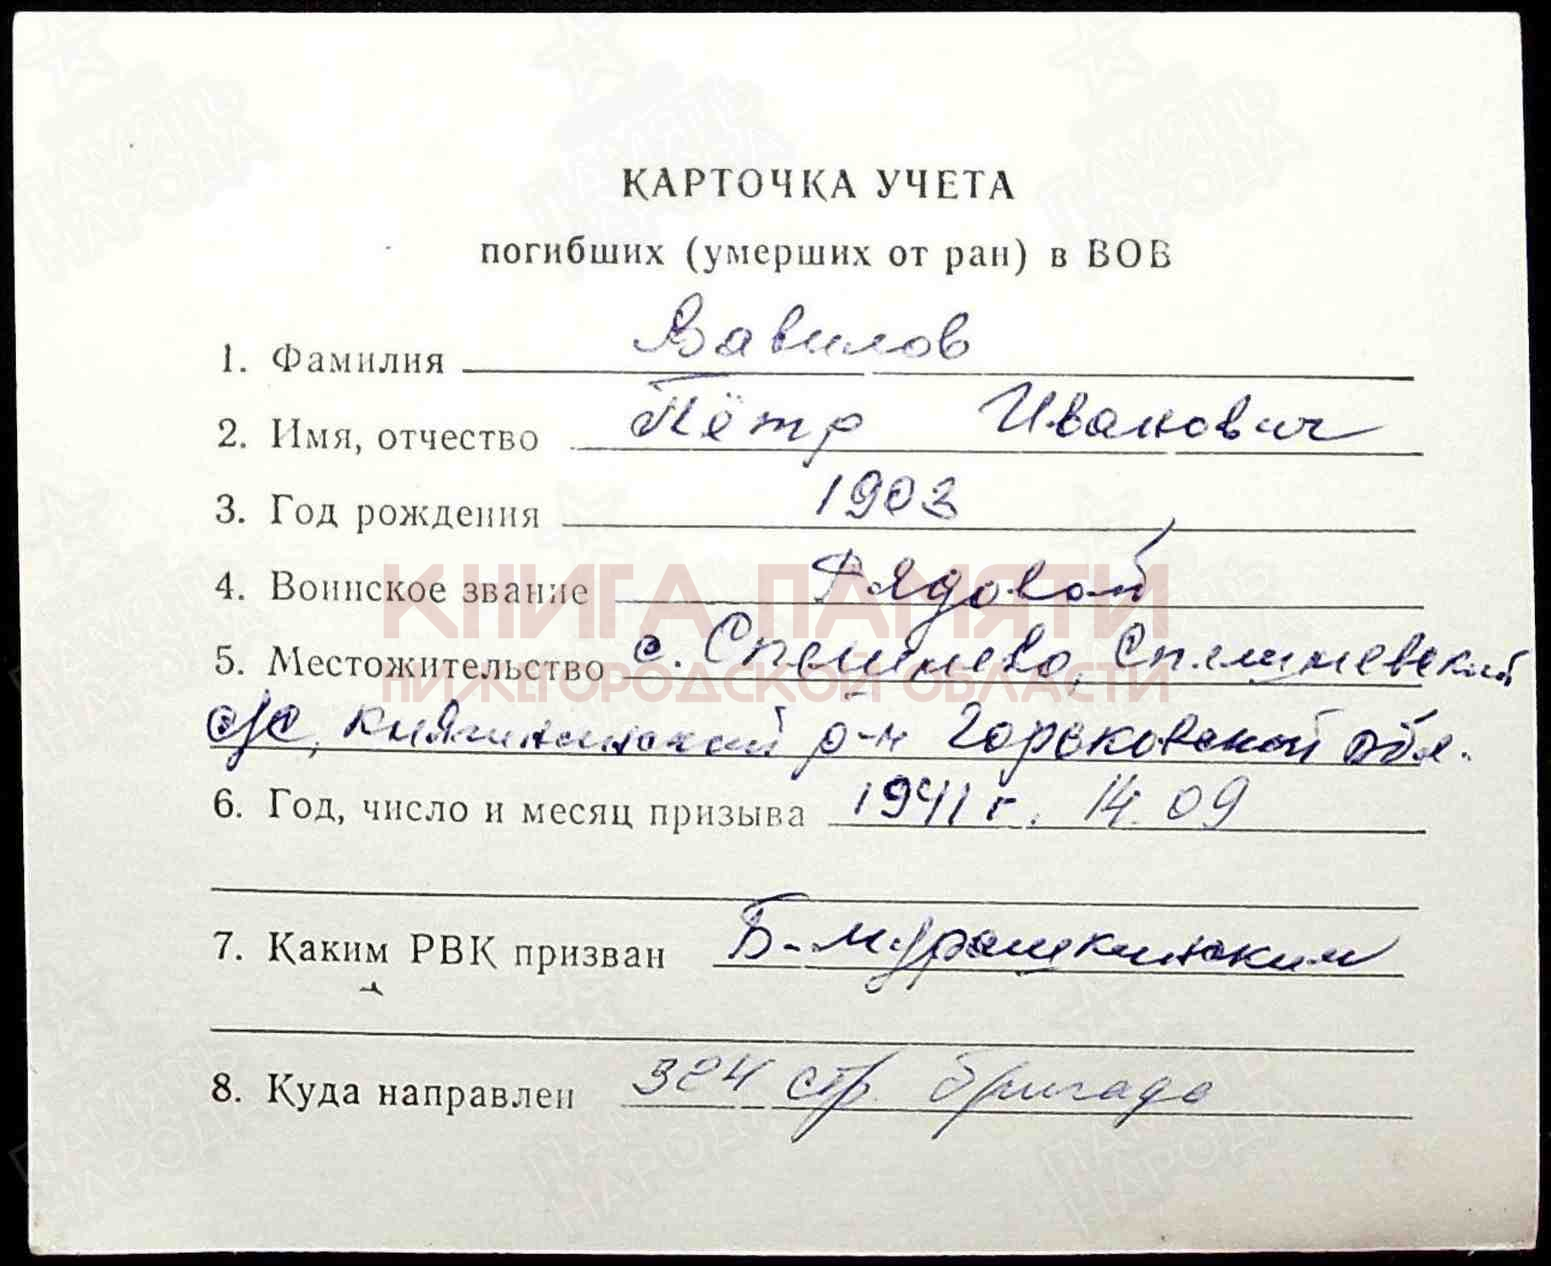 КАРТОЧКА УЧЕТА
погибших (умерших от ран) в ВОВ
1. Фамилия Вавилов
2. Имя, отчество Пётр Иванович
3. Год рождения 1903
4. Воинское звание Рядовой
КНИГА ПАМЯТИ
5. Местожительство с. Спешнево, Спешневский
НИЖЕГОРОДСКОЙ ОБЛАСТИ
с/с, Княгининский р-н Горьковской обл.
6. Год, число и месяц призыва 1941 г. 14.09
7. Каким РВК призван Б-Мурашкинским
8. Куда направлен 324 стр. бригада
ПАМЯТЬ НАРОДА